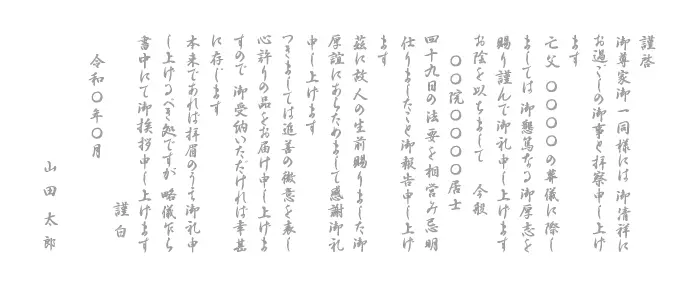 謹啓
御尊家御一同様には 御清祥に
お過ごしの御事と拝察申し上げ
ます
亡父 〇〇〇〇の葬儀に際し
ましては 御懇篤なる御厚志を
賜り謹んで御礼申し上げます
お陰を以ちまして 今般
〇〇院〇〇〇〇居士
四十九日の法要を相営み忌明
仕りましたこと御報告申し上げ
ます
茲に故人の生前賜りました御
厚誼にあらためまして感謝御礼
申し上げます
つきましては追善の微意を表し
心許りの品をお届け申し上げま
すので 御受納いただければ幸甚
に存じます
本来であれば拝眉のうえ御礼申
し上げるべき処ですが 略儀乍ら
書中にて御挨拶申し上げます
謹白
令和〇年〇月
山田太郎